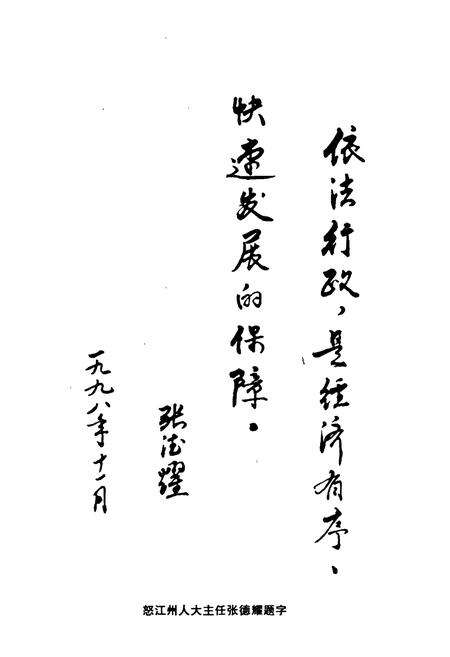 依法行政，是经济有序、
快速发展的保障。
张德耀
一九九八年十一月
怒江州人大主任张德耀题字